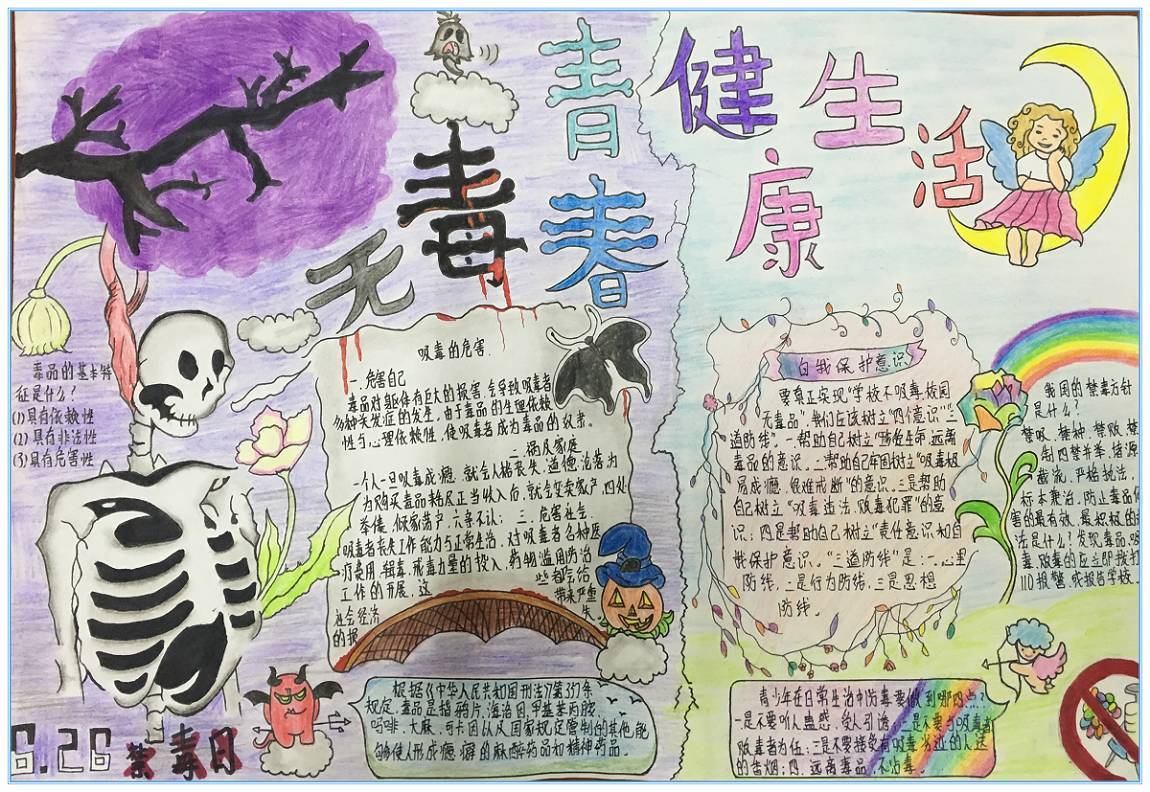 无毒青春
健康生活
毒品的基本特
征是什么?
(1)具有依赖性
(2)具有非法性
(3)具有危害性
吸毒的危害.
一.危害自己
毒品对躯体有巨大的损害,会导致吸毒者
多种并发症的发生,由于毒品的生理依赖
性与心理依赖性,使吸毒者成为毒品的奴隶。
二.祸及家庭
一个人一旦吸毒成瘾,就会人格丧失,道德沦落,为
为购买毒品耗尽正当收入后,就会变卖家产,四处
举债,倾家荡产,六亲不认; 三.危害社会
吸毒者丧失工作能力与正常生活,对吸毒者各种医
疗费用,缉毒,戒毒力量的投入,药物滥用防治
工作的开展,这些都给
社会经济 带来严重
的损
根据《中华人民共和国刑法》第357条
规定,毒品是指鸦片,海洛因,甲基苯丙胺,
吗啡,大麻,可卡因以及国家规定管制的其他能
够使人形成瘾癖的麻醉药品和精神药品。
6.26 禁毒日
自我保护意识
要真正实现“学校不吸毒,校园
无毒品”,我们应该树立“四个意识”“三
道防线”。一.帮助自己树立“珍爱生命,远离
毒品的意识。二.帮助自己牢固树立“吸毒极
易成瘾,很难戒断”的意识。三.是帮助
自己树立“吸毒违法,贩毒犯罪”的意
识;四是帮助自己树立“责任意识和自
我保护意识。“三道防线”是:一.心理
防线,二.是行为防线,三.是思想
防线。
我国的禁毒方针
是什么?
禁吸,禁种,禁贩,禁
制四禁并举,堵源
截流,严格执法,
标本兼治,防止毒品
害的最有效,最积极的
法是什么?发现毒品,吸
毒,贩毒的应立即拨打
110报警,或报告学校。
青少年在日常生活中防毒要做到哪四点?
一是不要听人蛊惑,受人引诱;二是不要与吸毒者
吸毒者为伍;三是不要接受有吸毒劣迹的人送
的香烟;四.远离毒品,不沾毒。